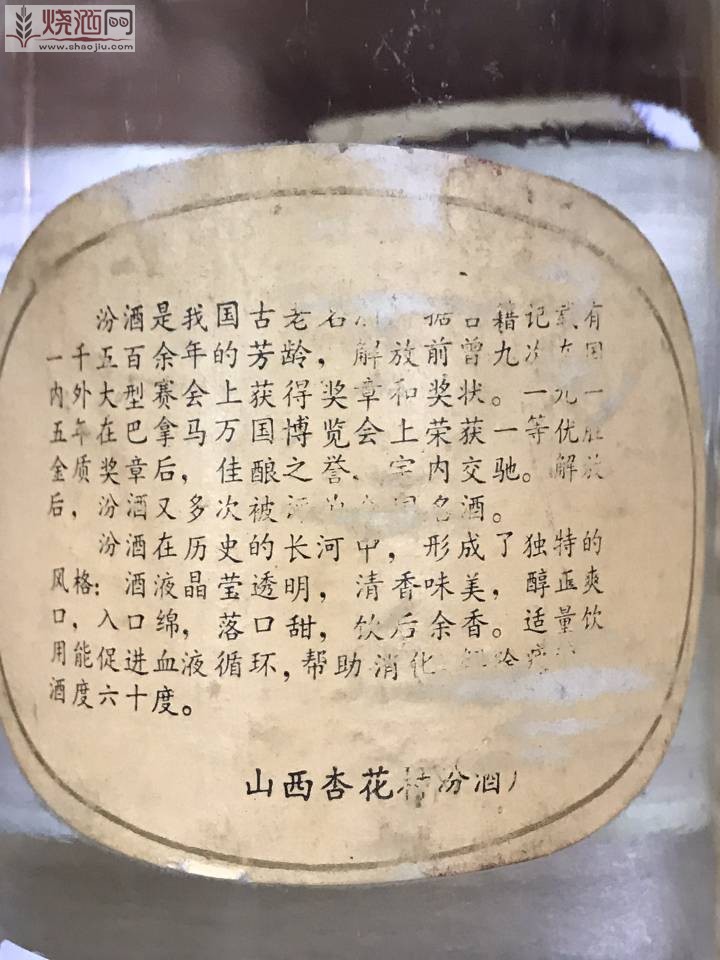 烧酒网
www.shaojiu.com
汾酒是我国古老名 据古籍记载有
一千五百余年的芳龄，解放前曾九次在国
内外大型赛会上获得奖章和奖状。一九一
五年在巴拿马万国博览会上荣获一等优胜
金质奖章后，佳酿之誉、宇内交驰。解放
后，汾酒又多次被 名酒。
汾酒在历史的长河中，形成了独特的
风格：酒液晶莹透明，清香味美，醇正爽
口，入口绵，落口甜，饮后余香。适量饮
用能促进血液循环，帮助消化
酒度六十度。
山西杏花村汾酒厂